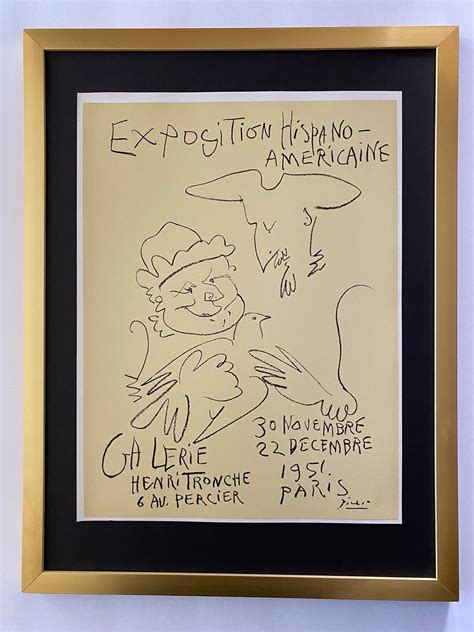 EXPOSITION HISPANO-
AMERICAINE
GALERIE
HENRI TRONCHE
6 AV. PERCIER
30 NOVEMBRE
22 DECEMBRE
1951.
PARIS
Picasso